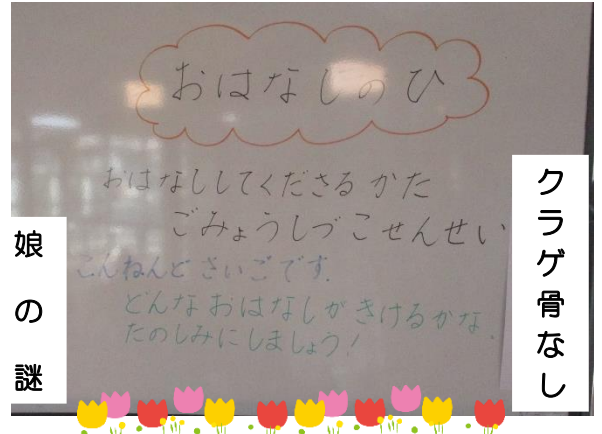 おはなしのひ
おはなししてくださるかた
ごみょうしづこせんせい
こんねんどさいごです.
どんなおはなしがきけるかな、
たのしみにしましょう!
クラゲ骨なし
娘の謎